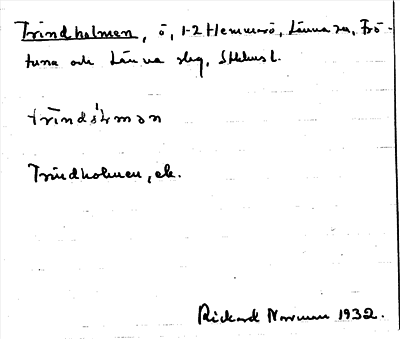 Trindholmen, ö, 1-2 Hemmarö, Länna sn, Frö-
tuna och Länna slg, Sthlms l.
trind
Trindholmen, ek.
Rickard Norman 1932.